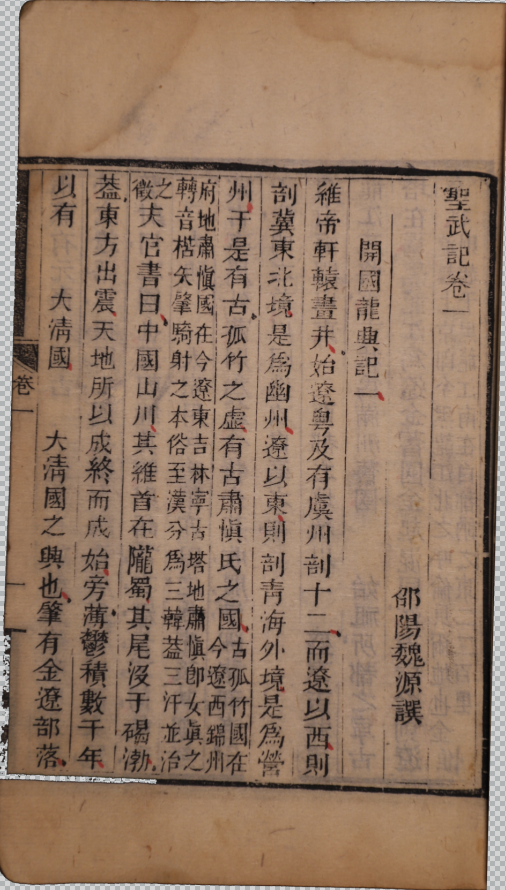 聖武記卷一
邵陽魏源譔
開國龍興記一
維帝軒轅畫井始遼粵及有虞州剖十二而遼以西則
剖冀東北境是爲幽州遼以東則剖青海外境是爲營
州于是有古孤竹之虛有古肅愼氏之國古孤竹國在今遼西錦州
府地肅愼國在今遼東吉林寧古塔地肅愼卽女眞之
轉音楛矢肇騎射之本俗至漢分爲三韓葢三汗並治
之
徵天官書曰中國山川其維首在隴蜀其尾沒于碣渤
葢東方出震天地所以成終而成始旁薄鬱積數千年
以有 大淸國 大淸國之興也肇有金遼部落
卷一